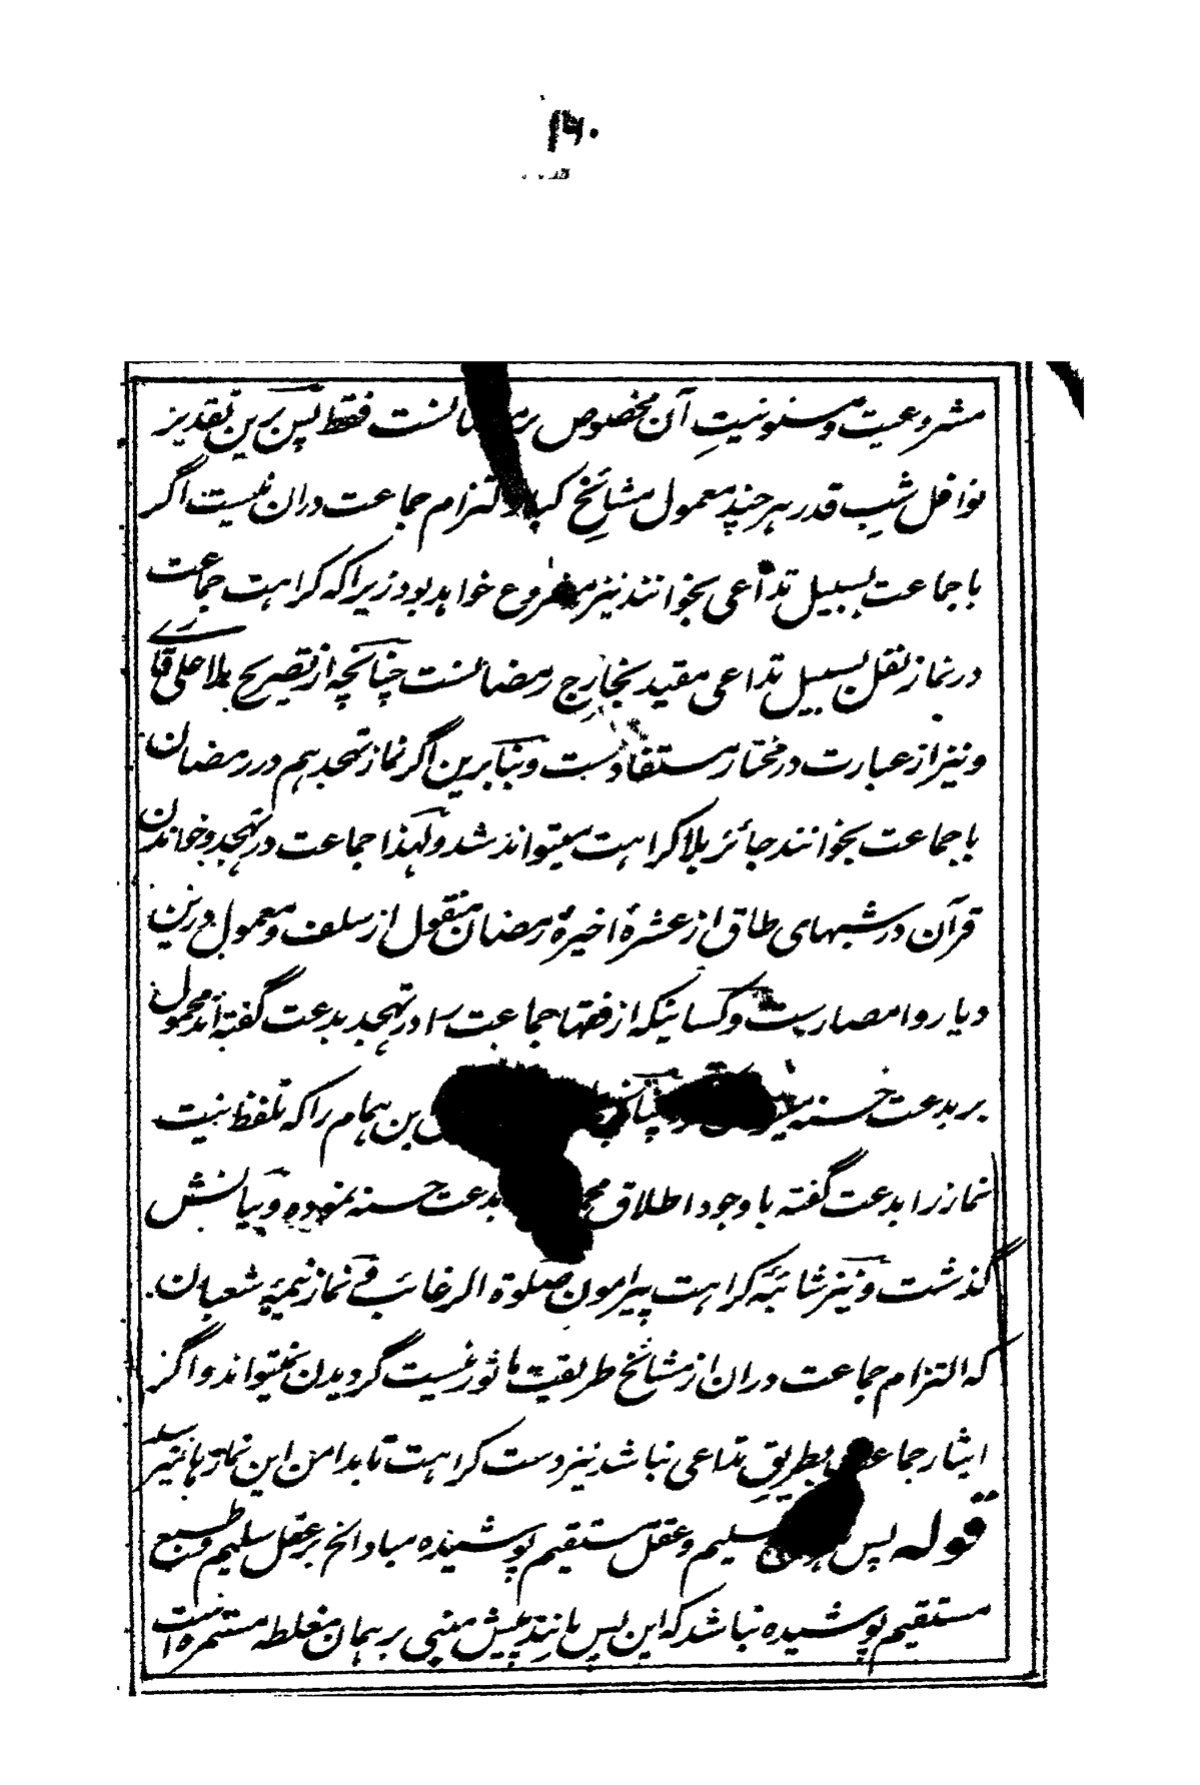 ۱۶۰
مشروعیت و مسنونیتِ آن مخصوص فقط پس برین تقدیر
نوافل شب قدر ہر چند معمول مشائخ التزام جماعت دران نیست اگر
با جماعت بسبیل تداعی بخوانند نیز مشروع خواہد بود زیرا کہ کراہت جماعت
در نماز نفل بسبیل تداعی مقید بخارجِ رمضانست چنانچہ از تصریح ملا علی قاری
و نیز از عبارت در مختار مستفادست و بنابرین اگر نماز تہجد ہم در رمضان
با جماعت بخوانند جائز بلا کراہت میتواند شد و لہذا جماعت در تہجد و خواندن
قرآن در شبہای طاق از عشرۂ اخیرۂ رمضان منقول از سلف و معمول درین
دیار و امصارست و کسانیکہ از فقہا جماعت را در تہجد بدعت گفتہ اند محمول
بر بدعت حسنہ بن ہمام را کہ تلفظ بنیت
نماز را بدعت گفتہ باوجود اطلاق بدعت حسنہ نمودہ و بیانش
گذشت و نیز شائبۂ کراہت پیرامون صلوۃ الرغائب فی نماز نیمۂ شعبان
کہ التزام جماعت دران از مشائخ طریقت ماثور نیست گردیدن نمیتواند و اگر
ایثار جماعت بطریقِ تداعی نباشد نیز دست کراہت تا بدامن این نمازہا نمیرسد
قولہ پس سلیم و عقل مستقیم پوشیدہ مباد الخ بر عقل سلیم و طبع
مستقیم پوشیدہ نباشد کہ این پس مانند پیش مبنی بر ہمان مغلطہ مستمرہ است